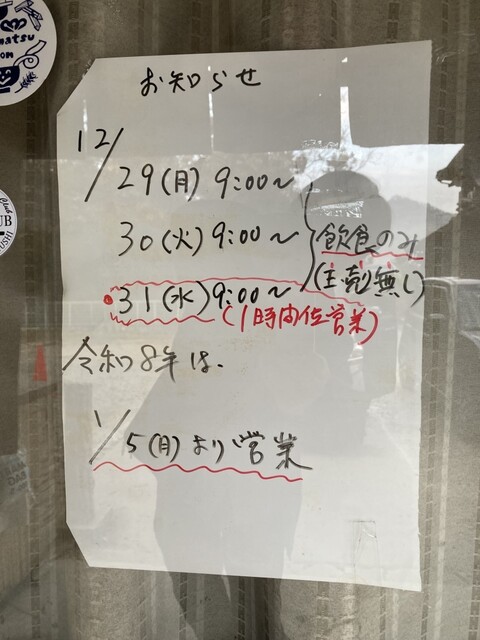 お知らせ
12/
29(月) 9:00～
30(火) 9:00～
飲食のみ
31(水) 9:00～
(豆売無し)
(1時間位営業)
令和8年は、
1/5(月)より営業